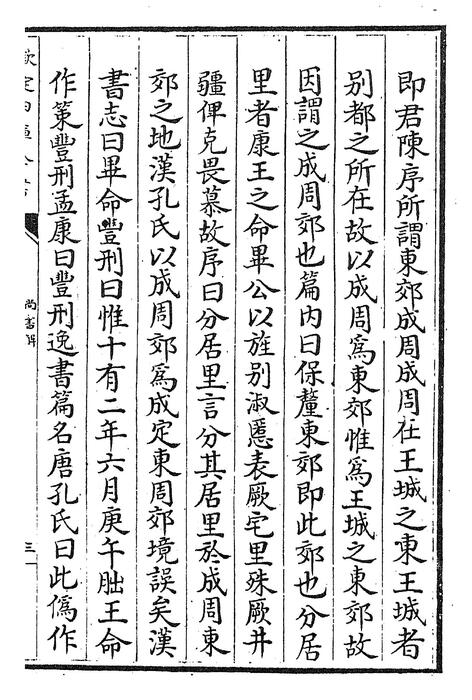 即君陳序所謂東郊成周成周在王城之東王城者
别都之所在故以成周為東郊惟為王城之東郊故
因謂之成周郊也篇内曰保釐東郊即此郊也分居
里者康王之命畢公以旌别淑慝表厥宅里殊厥井
疆俾克畏慕故序曰分居里言分其居里於成周東
郊之地漢孔氏以成周郊為成定東周郊境誤矣漢
書志曰畢命豐刑曰惟十有二年六月庚午朏王命
作策豐刑孟康曰豐刑逸書篇名唐孔氏曰此偽作
欽定四庫全書
尚書
三